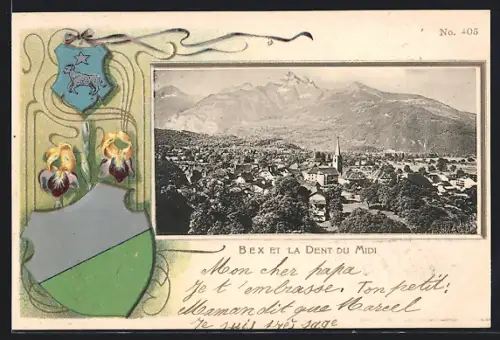 No. 403
BEX ET LA DENT DU MIDI
Mon cher papa
Je t'embrasse. Ton petit:
Maman dit que Marcel
Je suis très sage